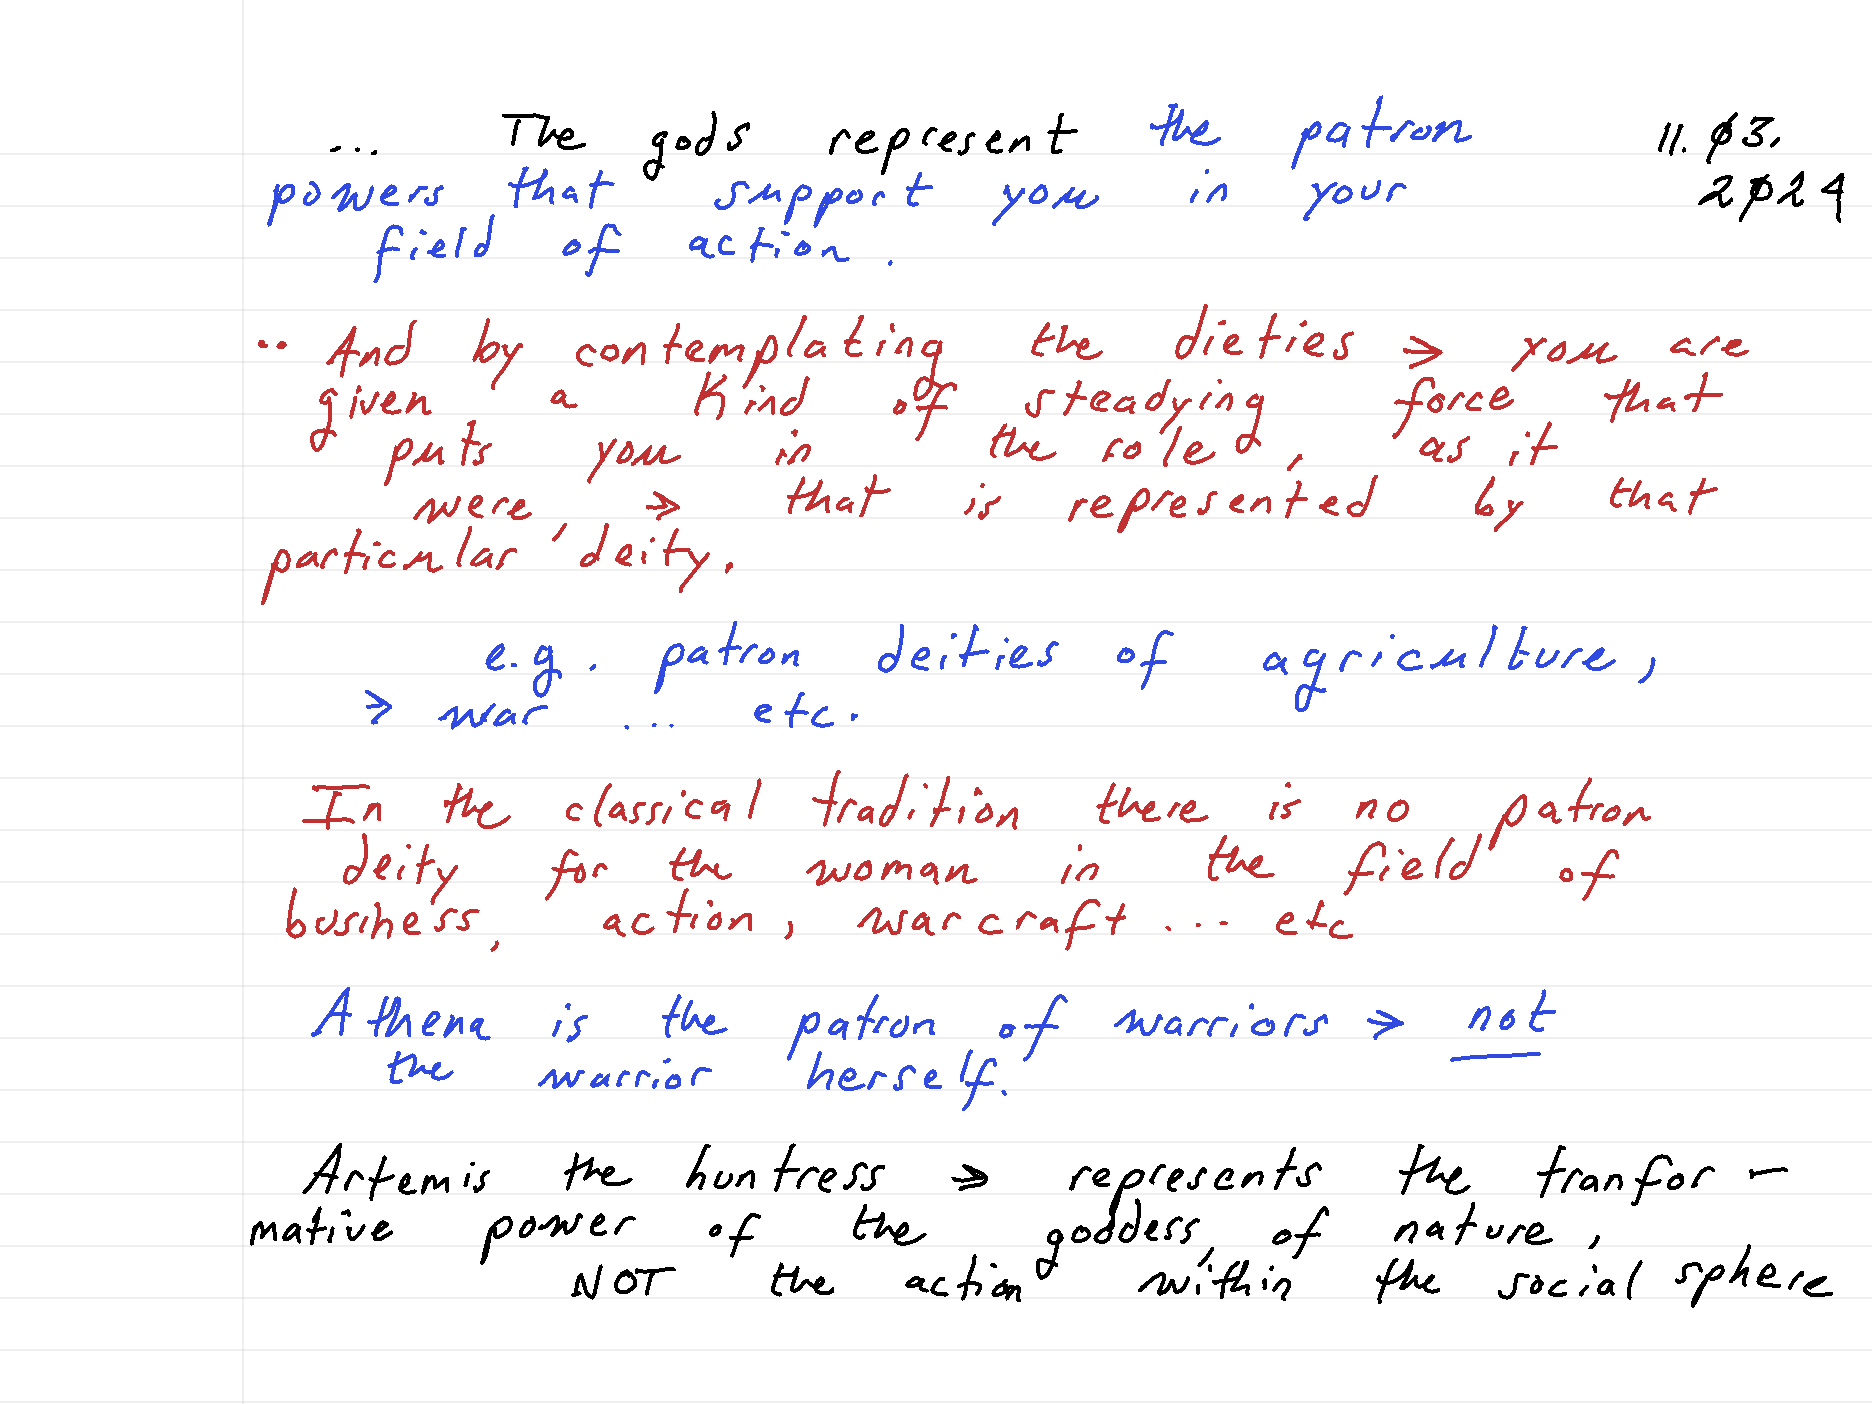 ... The gods represent the patron
11. ø3.
powers that support you in your
2ø24
field of action.
.. And by contemplating the dieties → you are
given a kind of steadying force that
puts you in the role, as it
were, → that is represented by that
particular deity.
e.g. patron deities of agriculture,
→ war ... etc.
In the classical tradition there is no patron
deity for the woman in the field of
business, action, warcraft ... etc
Athena is the patron of warriors → not
the warrior herself.
Artemis the huntress → represents the tranfor-
mative power of the goddess of nature,
NOT the action within the social sphere